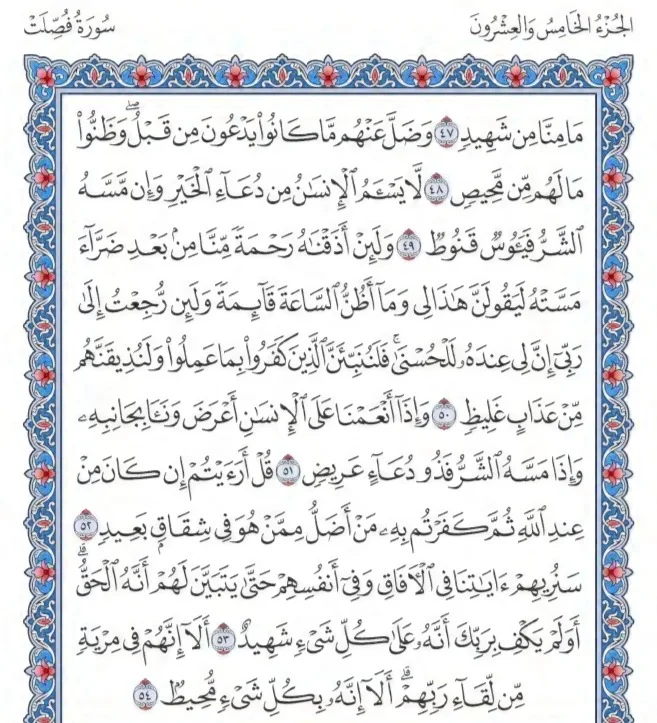 الجُزْءُ الخَامِسُ وَالعِشْرُونَ
سُورَةُ فُصِّلَتْ
مَا مِنَّا مِن شَهِيدٍ ٤٧ وَضَلَّ عَنْهُم مَّا كَانُوا۟ يَدْعُونَ مِن قَبْلُۖ وَظَنُّوا۟
مَا لَهُم مِّن مَّحِيصٍ ٤٨ لَّا يَسْـَٔمُ ٱلْإِنسَـٰنُ مِن دُعَآءِ ٱلْخَيْرِ وَإِن مَّسَّهُ
ٱلشَّرُّ فَيَـُٔوسٌ قَنُوطٌ ٤٩ وَلَئِنْ أَذَقْنَـٰهُ رَحْمَةً مِّنَّا مِنۢ بَعْدِ ضَرَّآءَ
مَسَّتْهُ لَيَقُولَنَّ هَـٰذَا لِى وَمَآ أَظُنُّ ٱلسَّاعَةَ قَآئِمَةً وَلَئِن رُّجِعْتُ إِلَىٰ
رَبِّىٓ إِنَّ لِى عِندَهُۥ لَلْحُسْنَىٰۚ فَلَنُنَبِّئَنَّ ٱلَّذِينَ كَفَرُوا۟ بِمَا عَمِلُوا۟ وَلَنُذِيقَنَّهُم
مِّنْ عَذَابٍ غَلِيظٍ ٥٠ وَإِذَآ أَنْعَمْنَا عَلَى ٱلْإِنسَـٰنِ أَعْرَضَ وَنَـَٔا بِجَانِبِهِۦ
وَإِذَا مَسَّهُ ٱلشَّرُّ فَذُو دُعَآءٍ عَرِيضٍ ٥١ قُلْ أَرَءَيْتُمْ إِن كَانَ مِنْ
عِندِ ٱللَّهِ ثُمَّ كَفَرْتُم بِهِۦ مَنْ أَضَلُّ مِمَّنْ هُوَ فِى شِقَاقٍۭ بَعِيدٍ ٥٢
سَنُرِيهِمْ ءَايَـٰتِنَا فِى ٱلْـَٔافَاقِ وَفِىٓ أَنفُسِهِمْ حَتَّىٰ يَتَبَيَّنَ لَهُمْ أَنَّهُ ٱلْحَقُّۗ
أَوَلَمْ يَكْفِ بِرَبِّكَ أَنَّهُۥ عَلَىٰ كُلِّ شَىْءٍ شَهِيدٌ ٥٣ أَلَآ إِنَّهُمْ فِى مِرْيَةٍ
مِّن لِّقَآءِ رَبِّهِمْۗ أَلَآ إِنَّهُۥ بِكُلِّ شَىْءٍ مُّحِيطٌۢ ٥٤